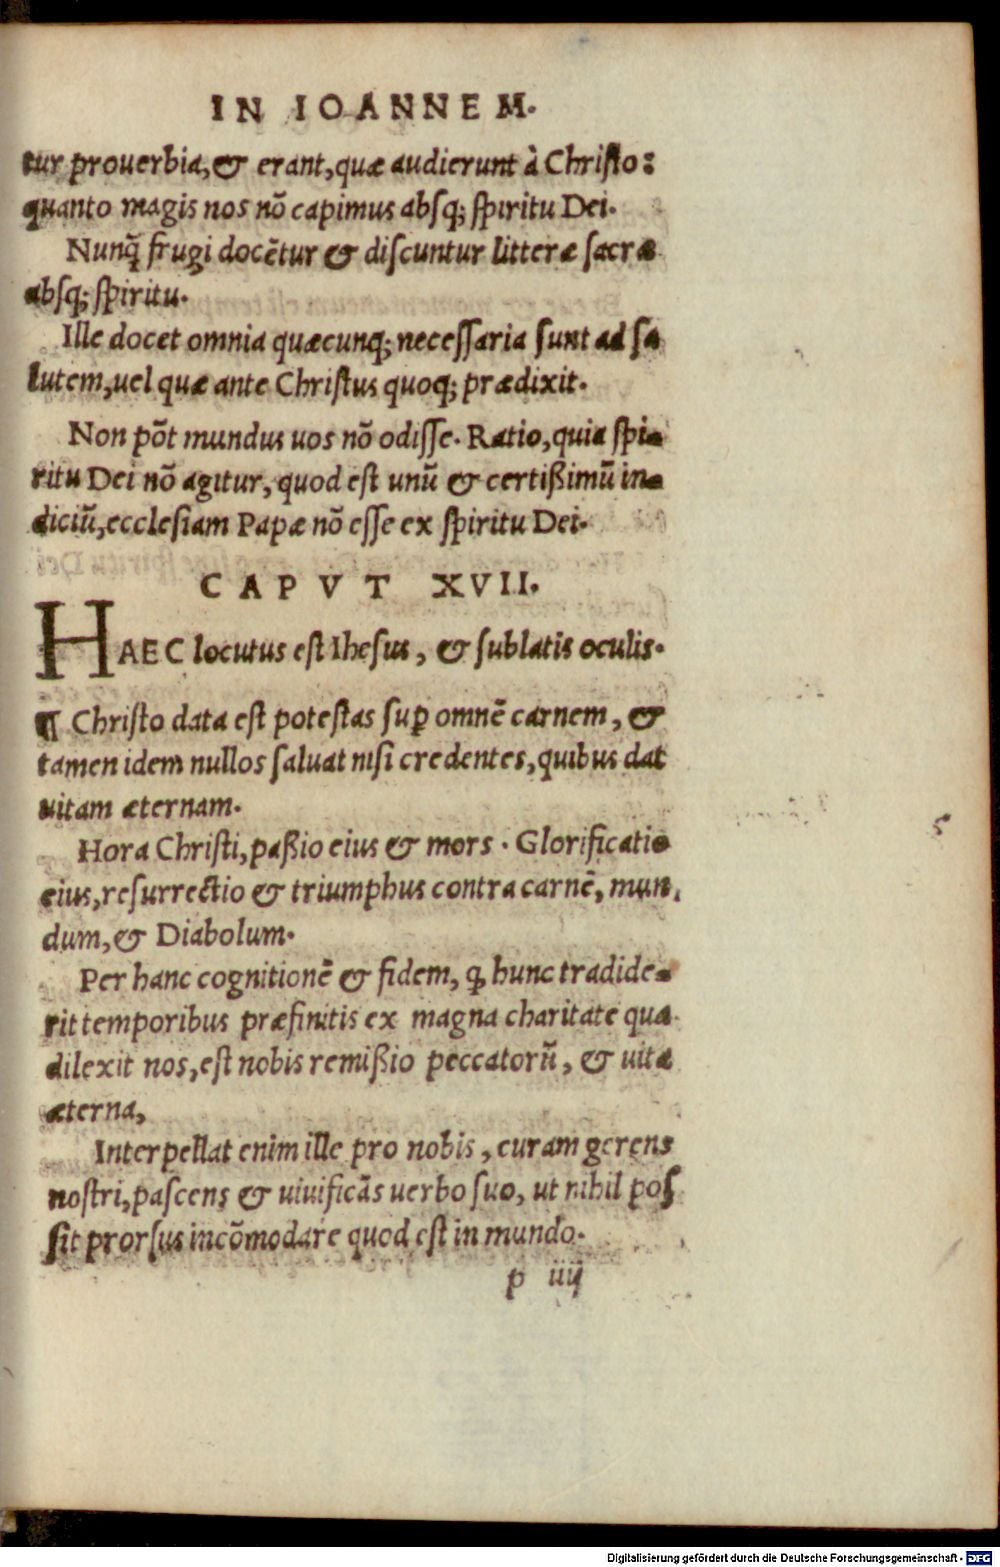 IN IOANNEM.
tur prouerbia, & erant, quæ audierunt à Christo:
quanto magis nos nõ capimus absq; spiritu Dei.
Nunq̃ frugi docẽtur & discuntur litteræ sacræ
absq; spiritu.
Ille docet omnia quæcunq; necessaria sunt ad sa
lutem, uel quæ ante Christus quoq; prædixit.
Non põt mundus uos nõ odisse. Ratio, quia spi-
ritu Dei nõ agitur, quod est unũ & certißimũ in-
diciũ, ecclesiam Papæ nõ esse ex spiritu Dei.
CAPVT XVII.
HAEC locutus est Ihesus, & sublatis oculis.
¶ Christo data est potestas suꝑ omnẽ carnem, &
tamen idem nullos saluat nisi credentes, quibus dat
uitam æternam.
Hora Christi, paßio eius & mors. Glorificatio
eius, resurrectio & triumphus contra carnẽ, mun
dum, & Diabolum.
Per hanc cognitionẽ & fidem, ꝙ hunc tradide-
rit temporibus præfinitis ex magna charitate qua
dilexit nos, est nobis remißio peccatorũ, & uita
æterna,
Interpellat enim ille pro nobis, curam gerens
nostri, pascens & uiuificãs uerbo suo, ut nihil pos
sit prorsus incõmodare quod est in mundo.
p iiij
Digitalisierung gefördert durch die Deutsche Forschungsgemeinschaft - DFG